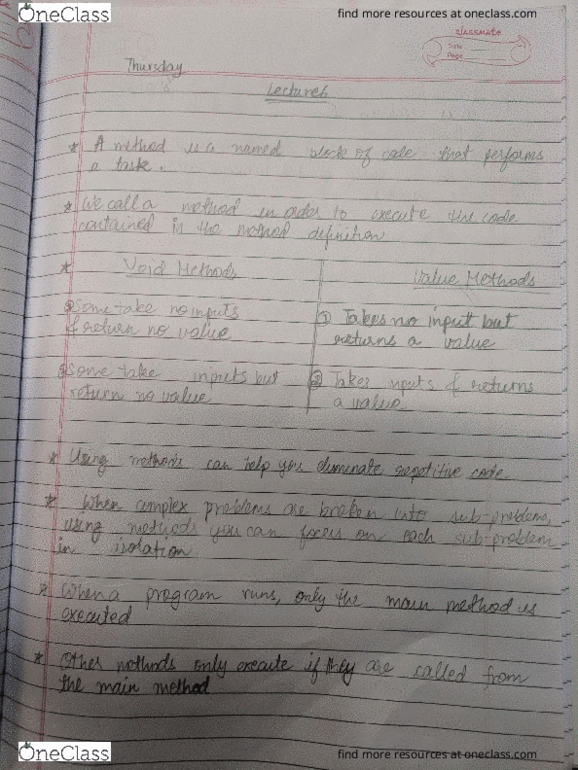 OneClass
find more resources at oneclass.com
classmate
Date
Page
Thursday
Lecture 6
* A method is a named block of code that performs
a task.
* We call a method in order to execute the code
contained in the method definition
* Void Methods
Value Methods
① Some take no inputs
& return no value
② Some take inputs but
return no value
① Takes no input but
returns a value
② Takes inputs & returns
a value
* Using methods can help you eliminate repetitive code
* When complex problems are broken into sub-problems,
using methods you can focus on each sub-problem
in isolation
* When a program runs, only the main method is
executed
* Other methods only execute if they are called from
the main method
OneClass
find more resources at oneclass.com